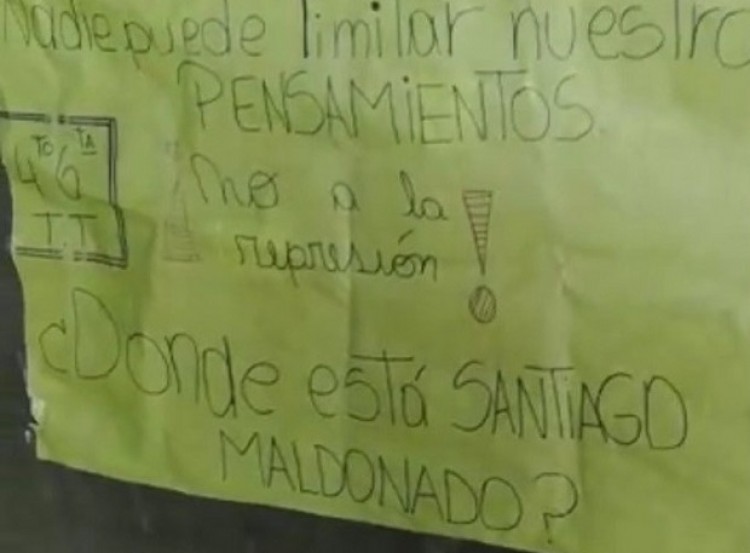 Nadie puede limitar nuestro
PENSAMiENTOS.
4TO 6TA
T.T
¡no a la
represión!
¿Donde está SANTiAGO
MALDONADO?